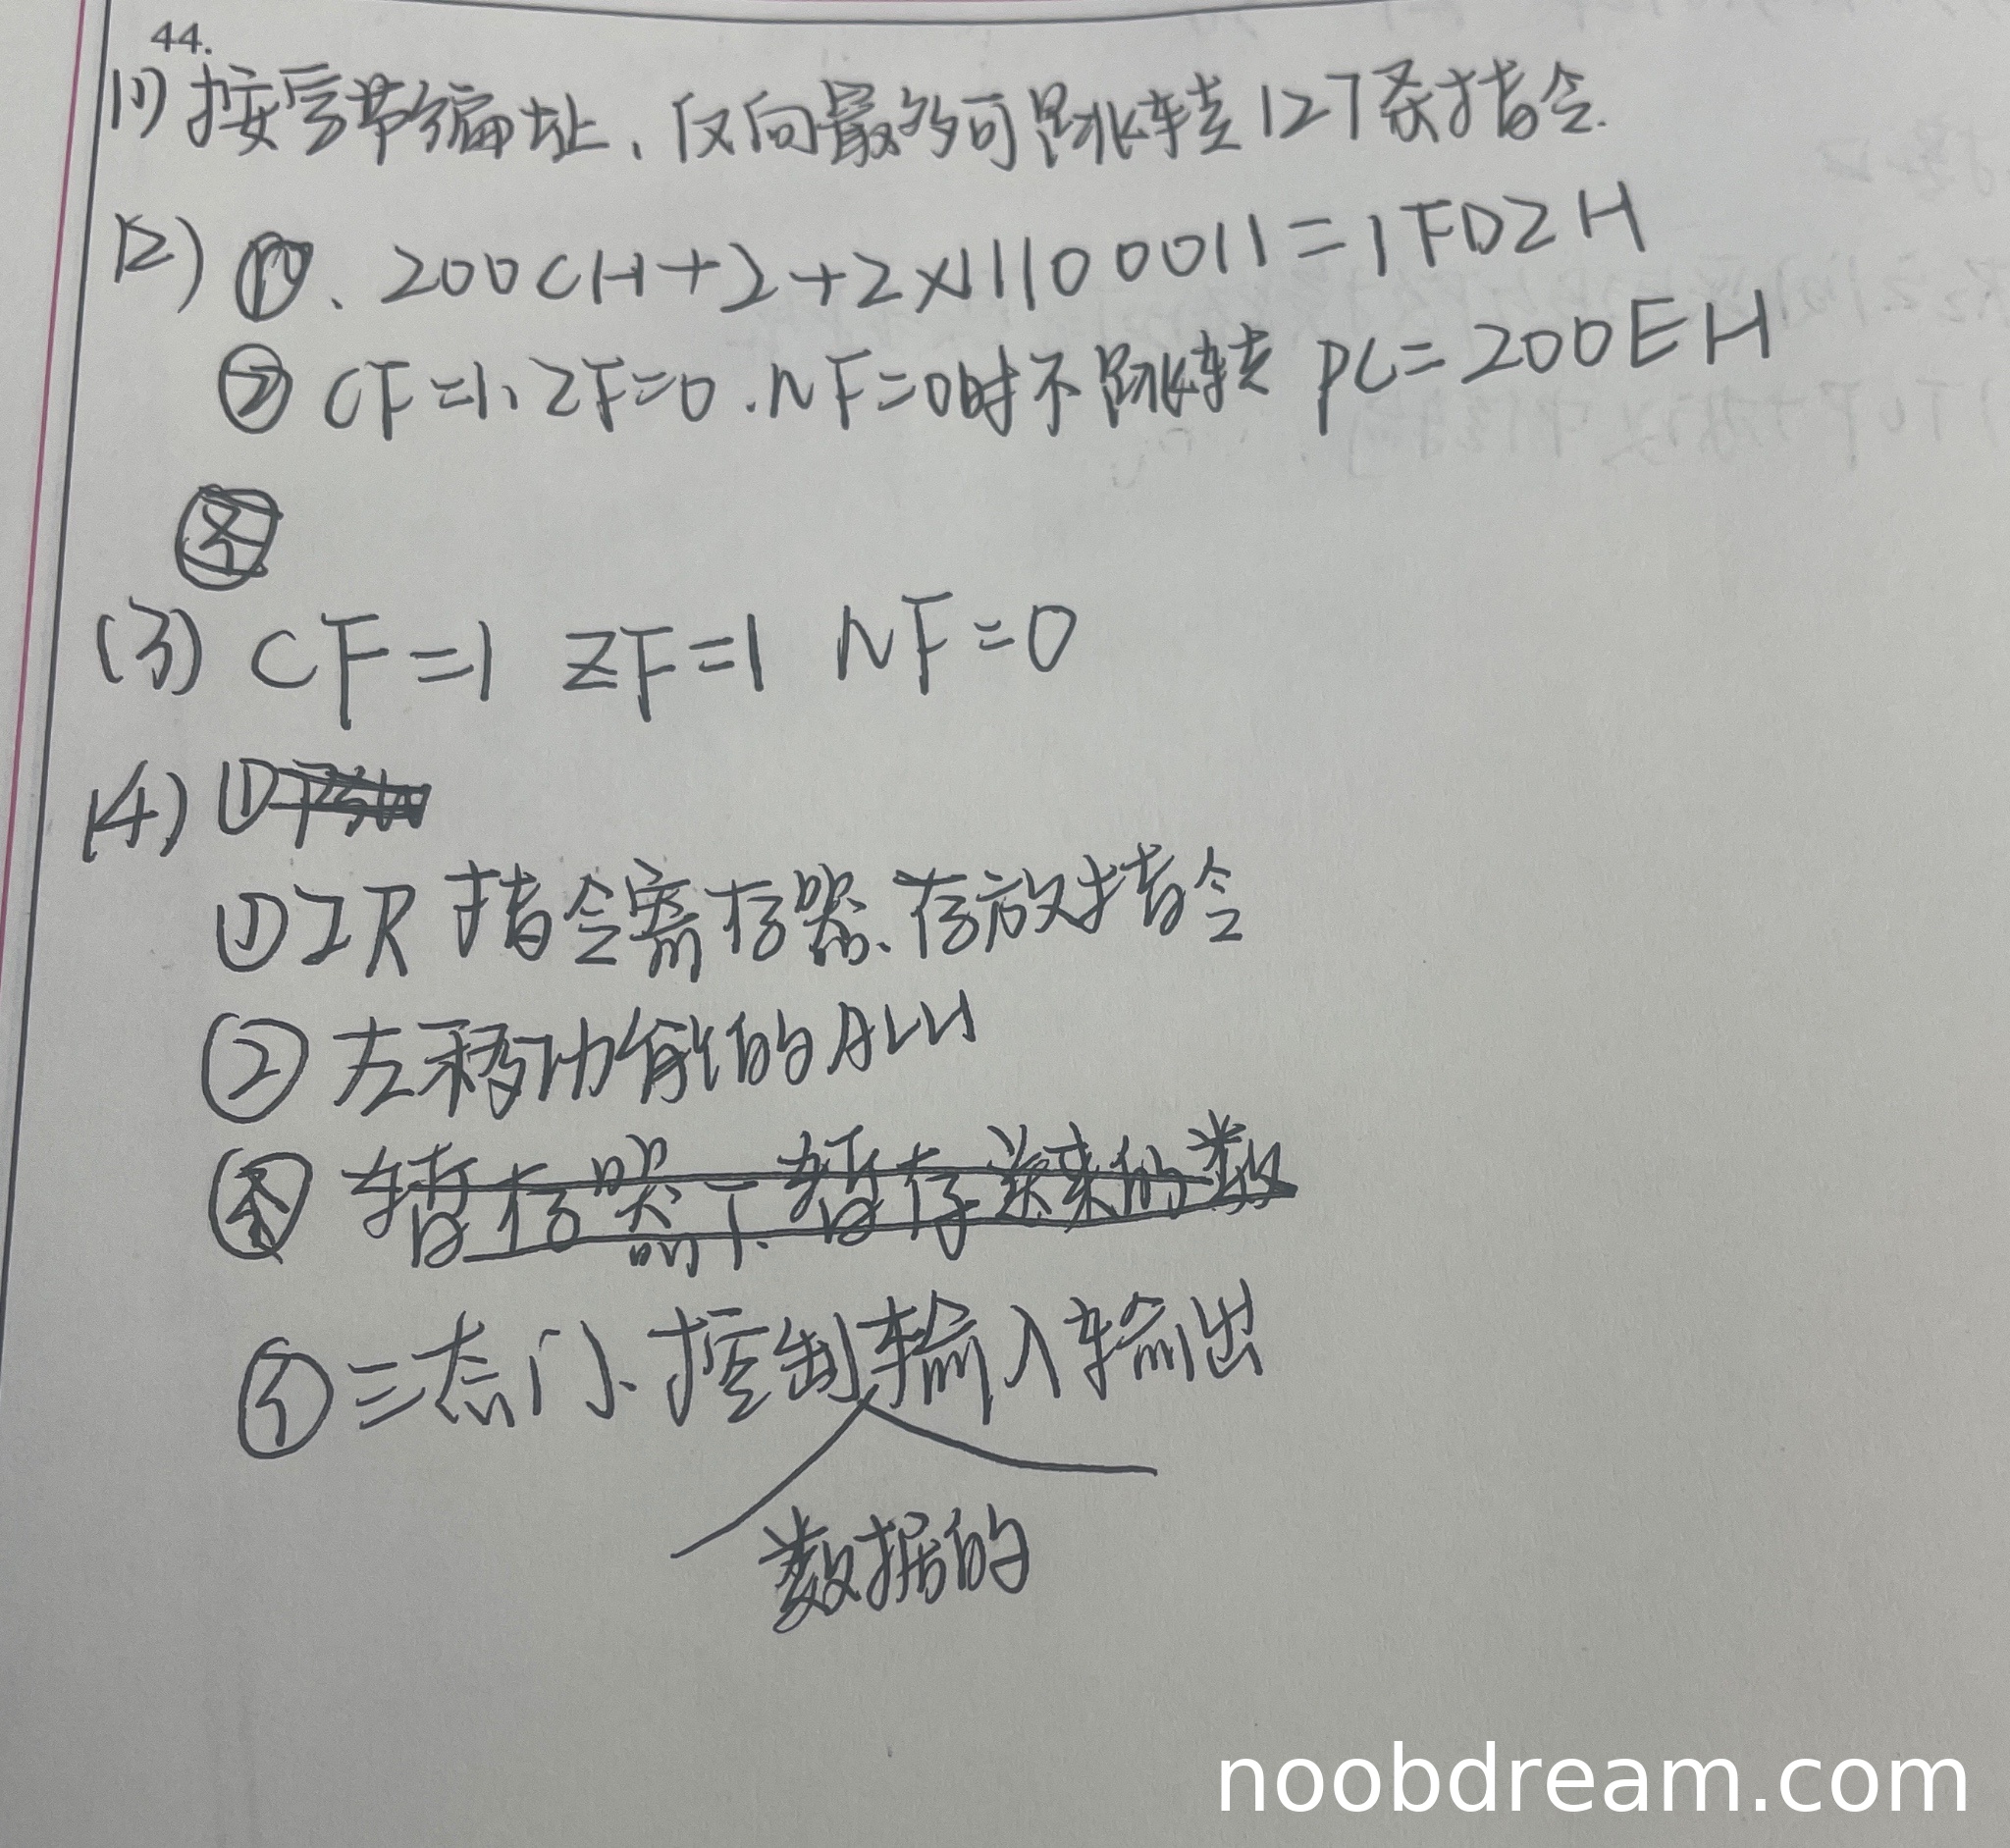 44.
(1) 按字节编址、反向最多可跳转127条指令.
(2) ①、200CH+2+2×11100011=1FD2H
② CF=1、ZF=0、NF=0时不跳转 PC=200EH
③
(3) CF=1 ZF=1 NF=0
(4) ①
①IR 指令寄存器、存放指令
② 左移功能的ALU
暂存器、暂存送来的数
③三态门、控制输入输出
数据的
noobdream.com